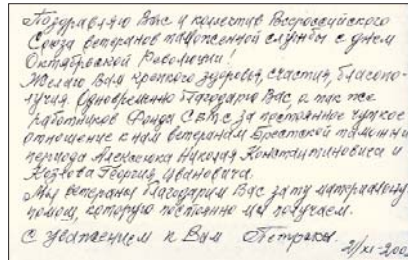 Поздравляю Вас и коллектив Всероссийского
Союза ветеранов таможенной службы с днем
Октябрьской Революции!
Желаю Вам крепкого здоровья, счастия, благопо-
лучия. Одновременно благодарю Вас, а так же
работников Фонда СВТС за постоянное чуткое
отношение к нам ветеранам Брестской таможни
периода Алексеюка Николая Константиновича и
Козлова Георгия Ивановича.
Мы ветераны благодарим Вас за ту материальную
помощь, которую постоянно мы получаем.
С уважением к Вам
2/XI-200